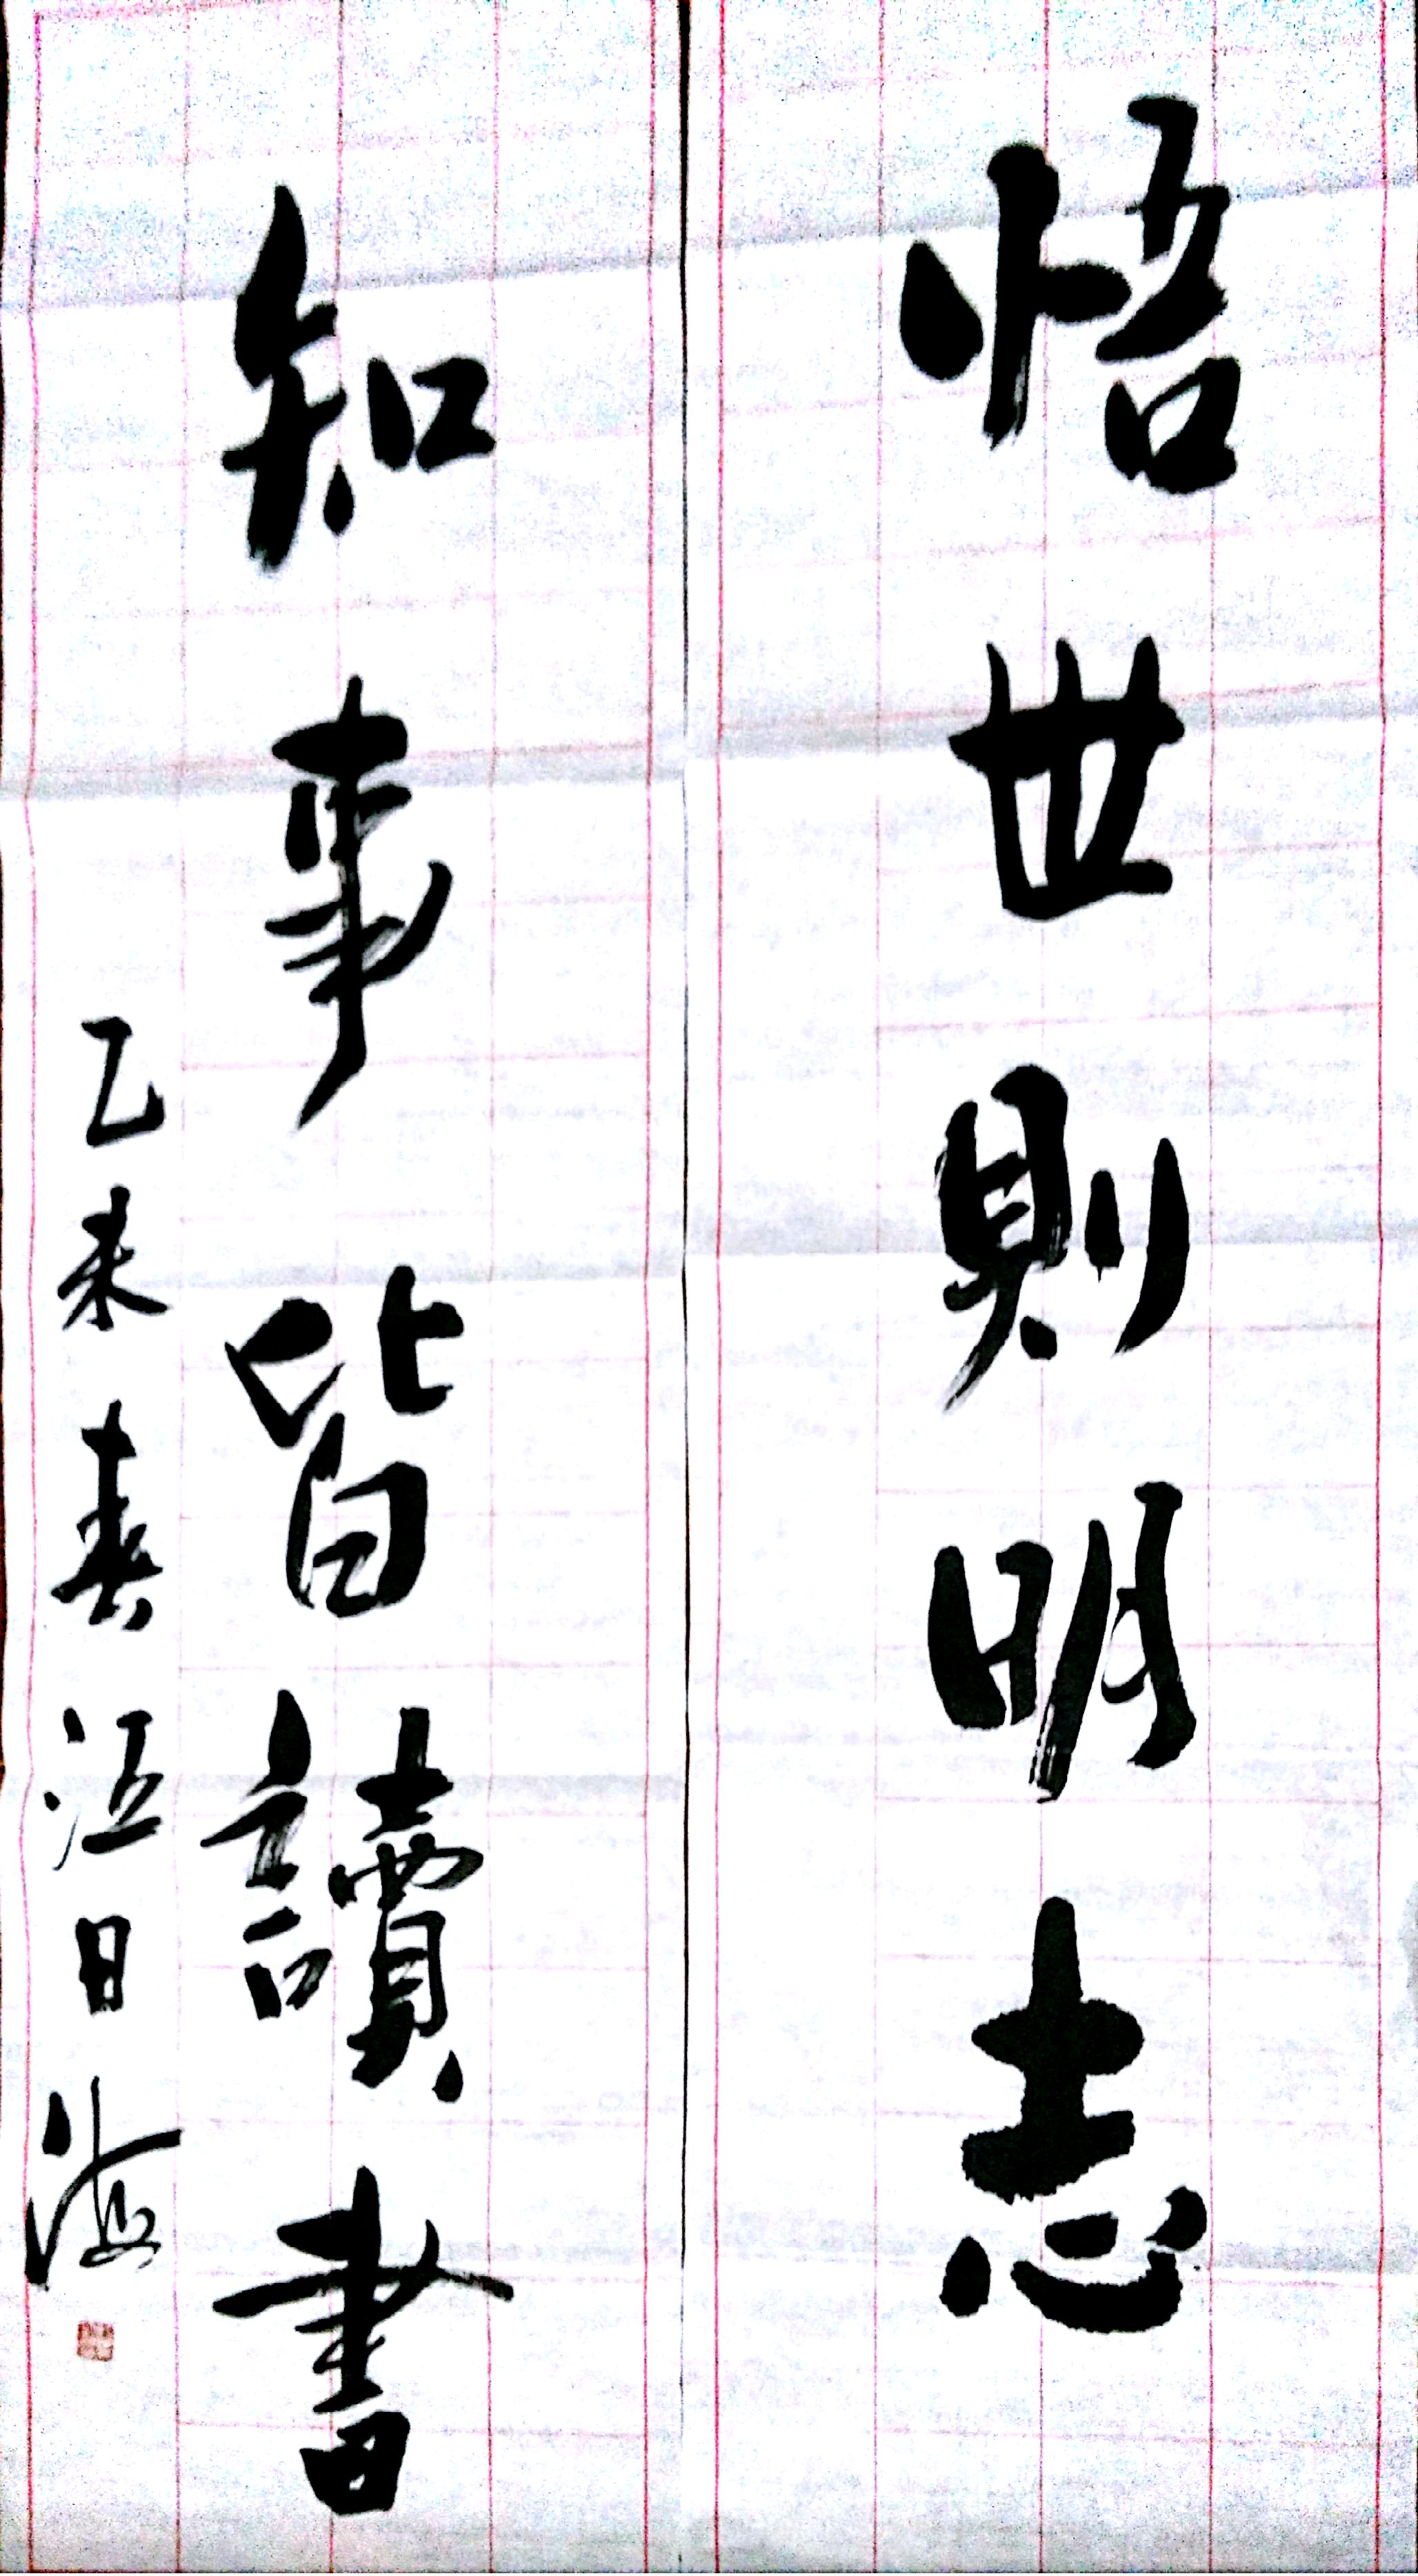 悟世則明志
知事皆讀書
乙未春 江日海